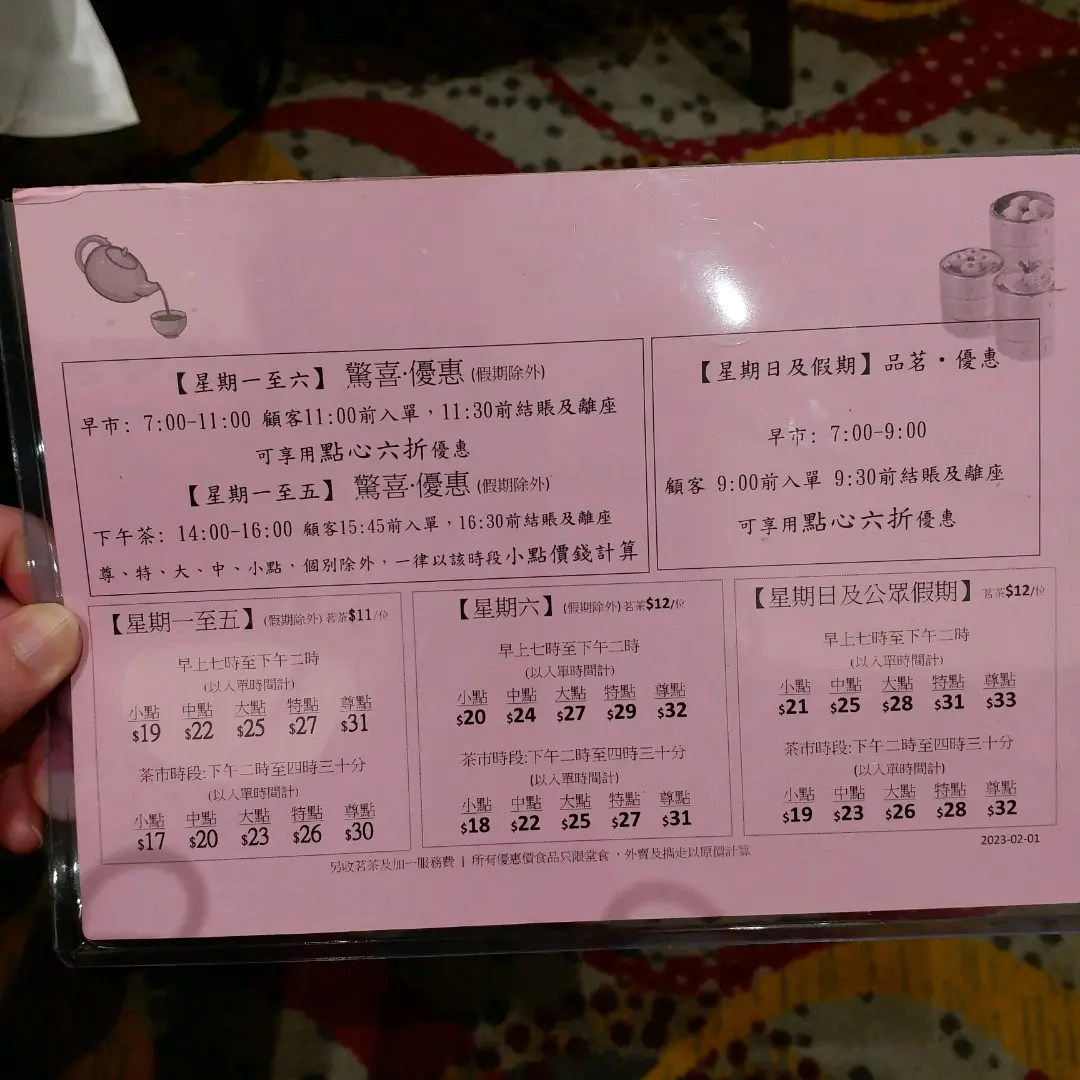 【星期一至六】 驚喜·優惠 (假期除外)
早市: 7:00-11:00 顧客11:00前入單，11:30前結賬及離座
可享用點心六折優惠
【星期一至五】 驚喜·優惠 (假期除外)
下午茶: 14:00-16:00 顧客15:45前入單，16:30前結賬及離座
尊、特、大、中、小點，個別除外，一律以該時段小點價錢計算
【星期日及假期】品茗·優惠
早市: 7:00-9:00
顧客 9:00前入單 9:30前結賬及離座
可享用點心六折優惠
【星期一至五】(假期除外) 茗茶$11/位
早上七時至下午二時
(以入單時間計)
小點 中點 大點 特點 尊點
$19 $22 $25 $27 $31
茶市時段:下午二時至四時三十分
(以入單時間計)
小點 中點 大點 特點 尊點
$17 $20 $23 $26 $30
【星期六】(假期除外) 茗茶$12/位
早上七時至下午二時
(以入單時間計)
小點 中點 大點 特點 尊點
$20 $24 $27 $29 $32
茶市時段:下午二時至四時三十分
(以入單時間計)
小點 中點 大點 特點 尊點
$18 $22 $25 $27 $31
【星期日及公眾假期】 茗茶$12/位
早上七時至下午二時
(以入單時間計)
小點 中點 大點 特點 尊點
$21 $25 $28 $31 $33
茶市時段:下午二時至四時三十分
(以入單時間計)
小點 中點 大點 特點 尊點
$19 $23 $26 $28 $32
另收茗茶及加一服務費 | 所有優惠價食品只限堂食，外賣及攜走以原價計算
2023-02-01